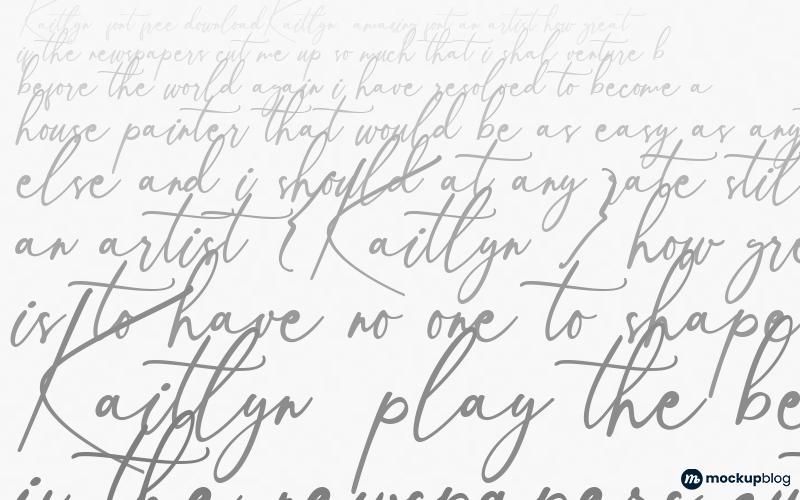 Kaitlyn font free download Kaitlyn amazing font an artist how great
in the newspapers cut me up so much that i shal venture b
before the world again i have resolved to become a
house painter that would be as easy as any
else and i should at any rate stil
an artist { Kaitlyn } how gre
is to have no one to shape
Kaitlyn play the be
in the newspapers
mockupblog